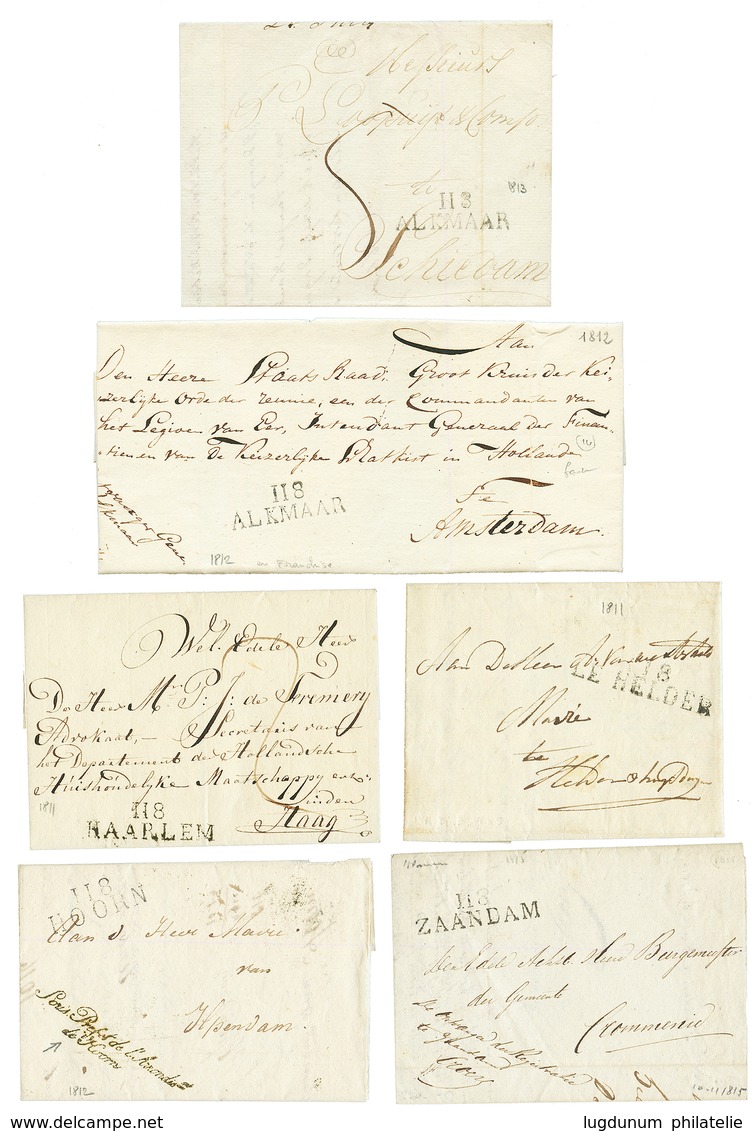 Messieurs
& Comp.
te
1813
118
ALKMAAR
Schiedam
Aan
1812
Den Heere Staats Raad, Groot Kruis der Kei-
zerlyke Orde der reunie, een der Commandanten van
het Legioen van Eer, Intendant Generaal der Finan-
tien en van De Keizerlyke Schatkist in Holland
Te
Amsterdam.
118
ALKMAAR
1812
en Franchise
Wel Edele Heer
De Heer Mr. P: J: de Fremery
Advokaat, Secretaris van
het Departement der Hollandsche
Huishoudelyke Maatschappy
in den
Haag
1811
118
HAARLEM
1811
Aan
118
LE HELDER
Maire
te
Helder
118
HOORN
Aan de Heer Maire
van
Ilpendam.
Sous Préfet de l'Arrondisst
de Hoorn
1812
118
ZAANDAM
Den Edele Achtb Heer Burgemeester
der Gemeente
Crommenie
1815
lugdunum philatelie